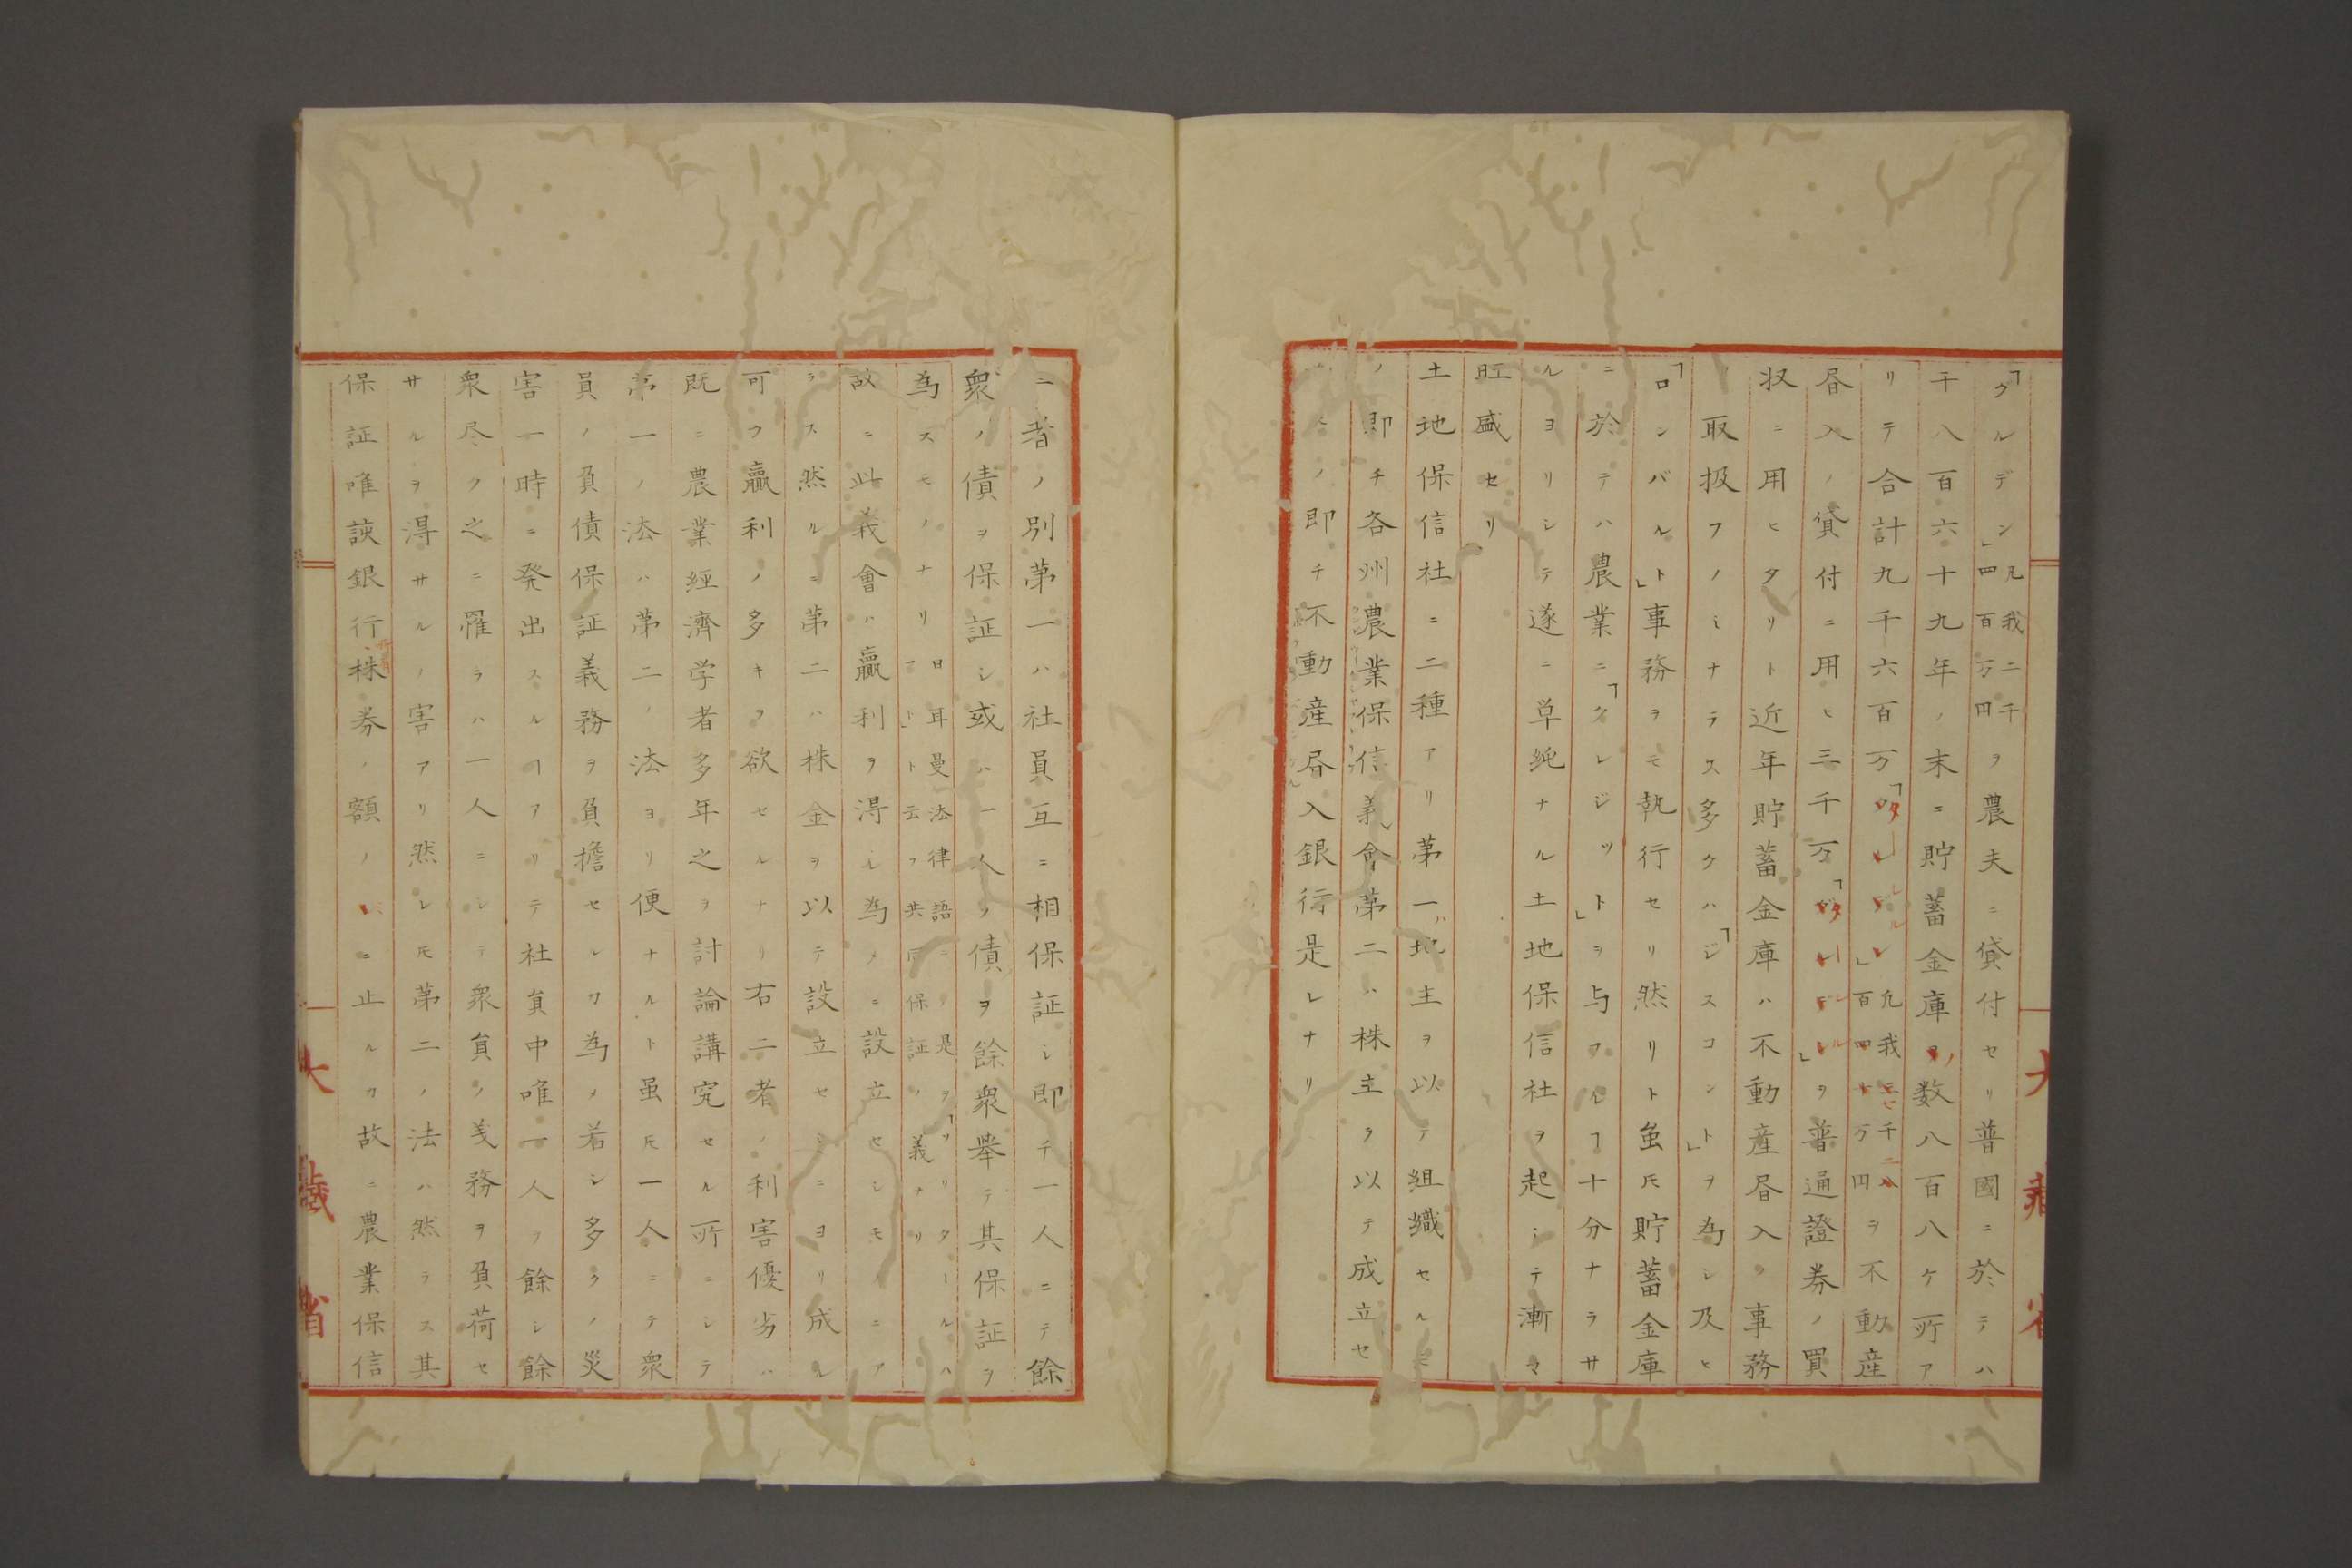 「グルデン」凡我二千四百万円ヲ農夫ニ貸付セリ普國ニ於テハ
千八百六十九年ノ末ニ貯蓄金庫ノ数八百八ケ所ア
リテ合計九千六百万「タ レル」凡我 千 百 万円ヲ不動産
昏入ノ貸付ニ用ヒ三千万「 」ヲ普通證券ノ買
収ニ用ヒタリト近年貯蓄金庫ハ不動産昏入ノ事務
ノ取扱フノミナラス多クハ「ジスコント」ヲ為シ及ヒ
「ロンバルト」事務ヲモ執行セリ然リト虽モ貯蓄金庫
ニ於テハ農業ニ「クレジツト」ヲ与フルヿ十分ナラサ
ルヨリシテ遂ニ単純ナル土地保信社ヲ起シテ漸マ
旺盛セリ
土地保信社ニ二種アリ第一ハ地主ヲ以テ組織セルモ
ノ即チ各州農業保信義會第二ハ株主ヲ以テ成立セ
ルモノ即チ不動産昏入銀行是レナリ
二者ノ別第一ハ社員互ニ相保証シ即チ一人ニテ餘
衆ノ債ヲ保証シ或ハ一人ノ債ヲ餘衆挙テ其保証ヲ
為スモノナリ日耳曼法律語ニテ是ヲ「ソリダールハフト」ト云フ共同保証ノ義ナリ
故ニ此義會ハ贏利ヲ得ル為メニ設立セシモノニア
ラス然ルニ第二ハ株金ヲ以テ設立セシニヨリ成ル
可ク贏利ノ多キヲ欲セルナリ右二者ノ利害優劣ハ
既ニ農業經濟学者多年之ヲ討論講究セル所ニシテ
第一ノ法ハ第二ノ法ヨリ便ナルト虽モ一人ニテ衆
員ノ負債保証義務ヲ負擔セシヿ為メ若シ多クノ災
害一時ニ発出スルヿアリテ社員中唯一人ヲ餘シ餘
衆尽ク之ニ罹ラハ一人ニシテ衆員ノ義務ヲ負荷セ
サルヲ得サルノ害アリ然レモ第二ノ法ハ然ラス其
保証唯該銀行株券ノ額ノミニ止ルヿ故ニ農業保信
大藏省
大藏省